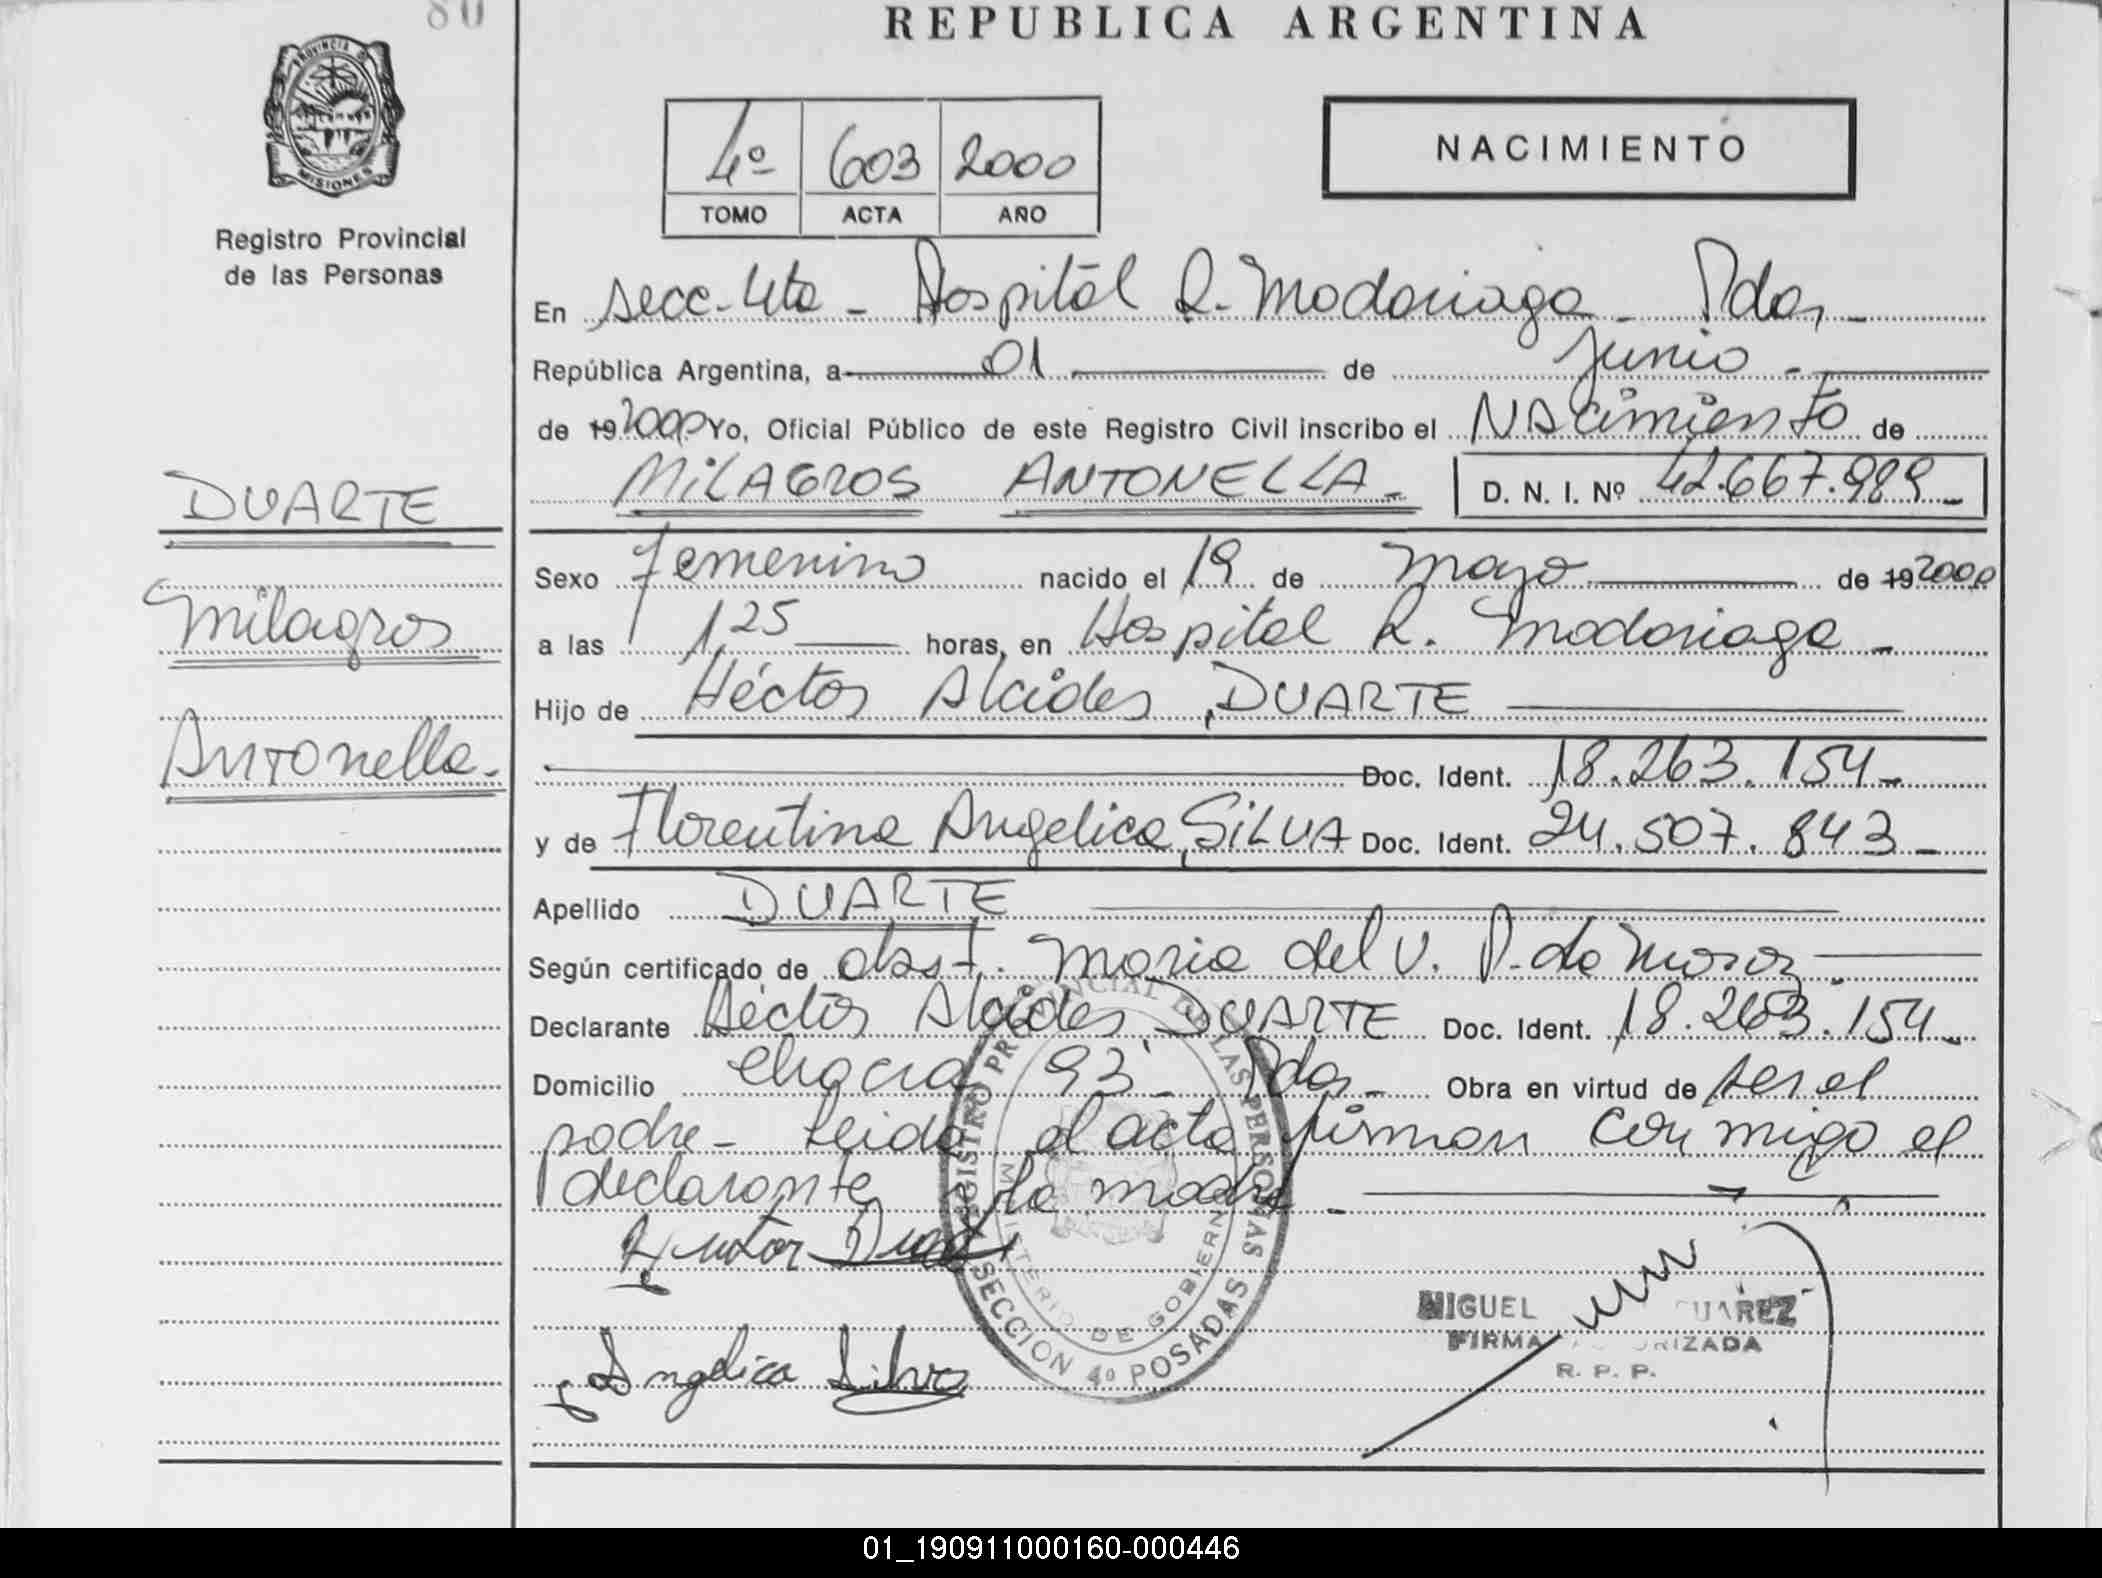 80
REPUBLICA ARGENTINA
PROVINCIA DE MISIONES
Registro Provincial
de las Personas
4º 603 2000
TOMO ACTA AÑO
NACIMIENTO
En secc. 4ta - Hospital R. Madariaga - Pdas -
República Argentina, a 01 de Junio -
de 19 2000 Yo, Oficial Público de este Registro Civil inscribo el NAcimiento de
MILAGROS ANTONELLA - D. N. I. Nº 42.667.989 -
DUARTE
Milagros
Antonella -
Sexo Femenino nacido el 19 de Mayo de 19 2000
a las 1,25 horas, en Hospital R. Madariaga -
Hijo de Héctor Alcides, DUARTE
Doc. Ident. 18.263.154 -
y de Florentina Angelica, SILVA Doc. Ident. 24.507.843 -
Apellido DUARTE
Según certificado de obst. Maria del V. P. de
Declarante Héctor Alcides DUARTE Doc. Ident. 18.263.154 -
Domicilio chacra 93 - Pdas - Obra en virtud de ser el
padre - Leida el acta firman conmigo el
declarante y la madre -
Hector Duarte
Angelica Silva
REGISTRO PROVINCIAL DE LAS PERSONAS
MINISTERIO DE GOBIERNO
SECCION 4º POSADAS
MIGUEL
FIRMA AUTORIZADA
R. P. P.
01_190911000160-000446